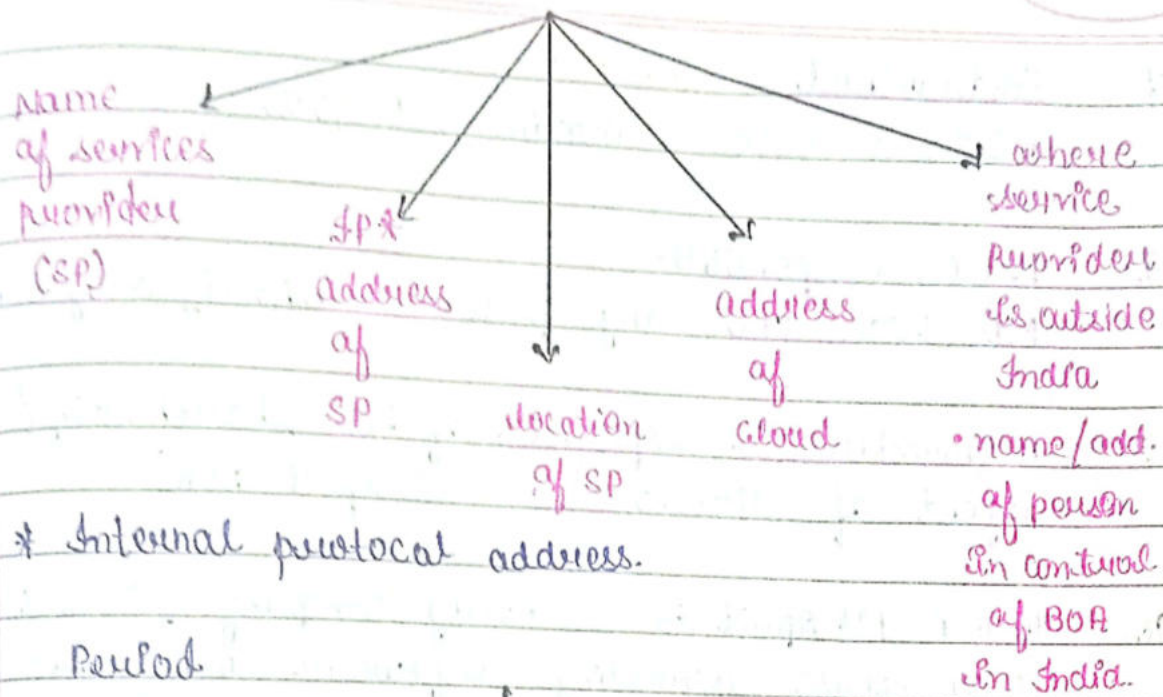 Name
of services
provider
(SP)
IP*
address
of
SP
location
of SP
address
of
cloud
where
service
provider
is outside
India
• name/add.
of person
in control
of BOA
in India.
* Internal protocal address.
Period